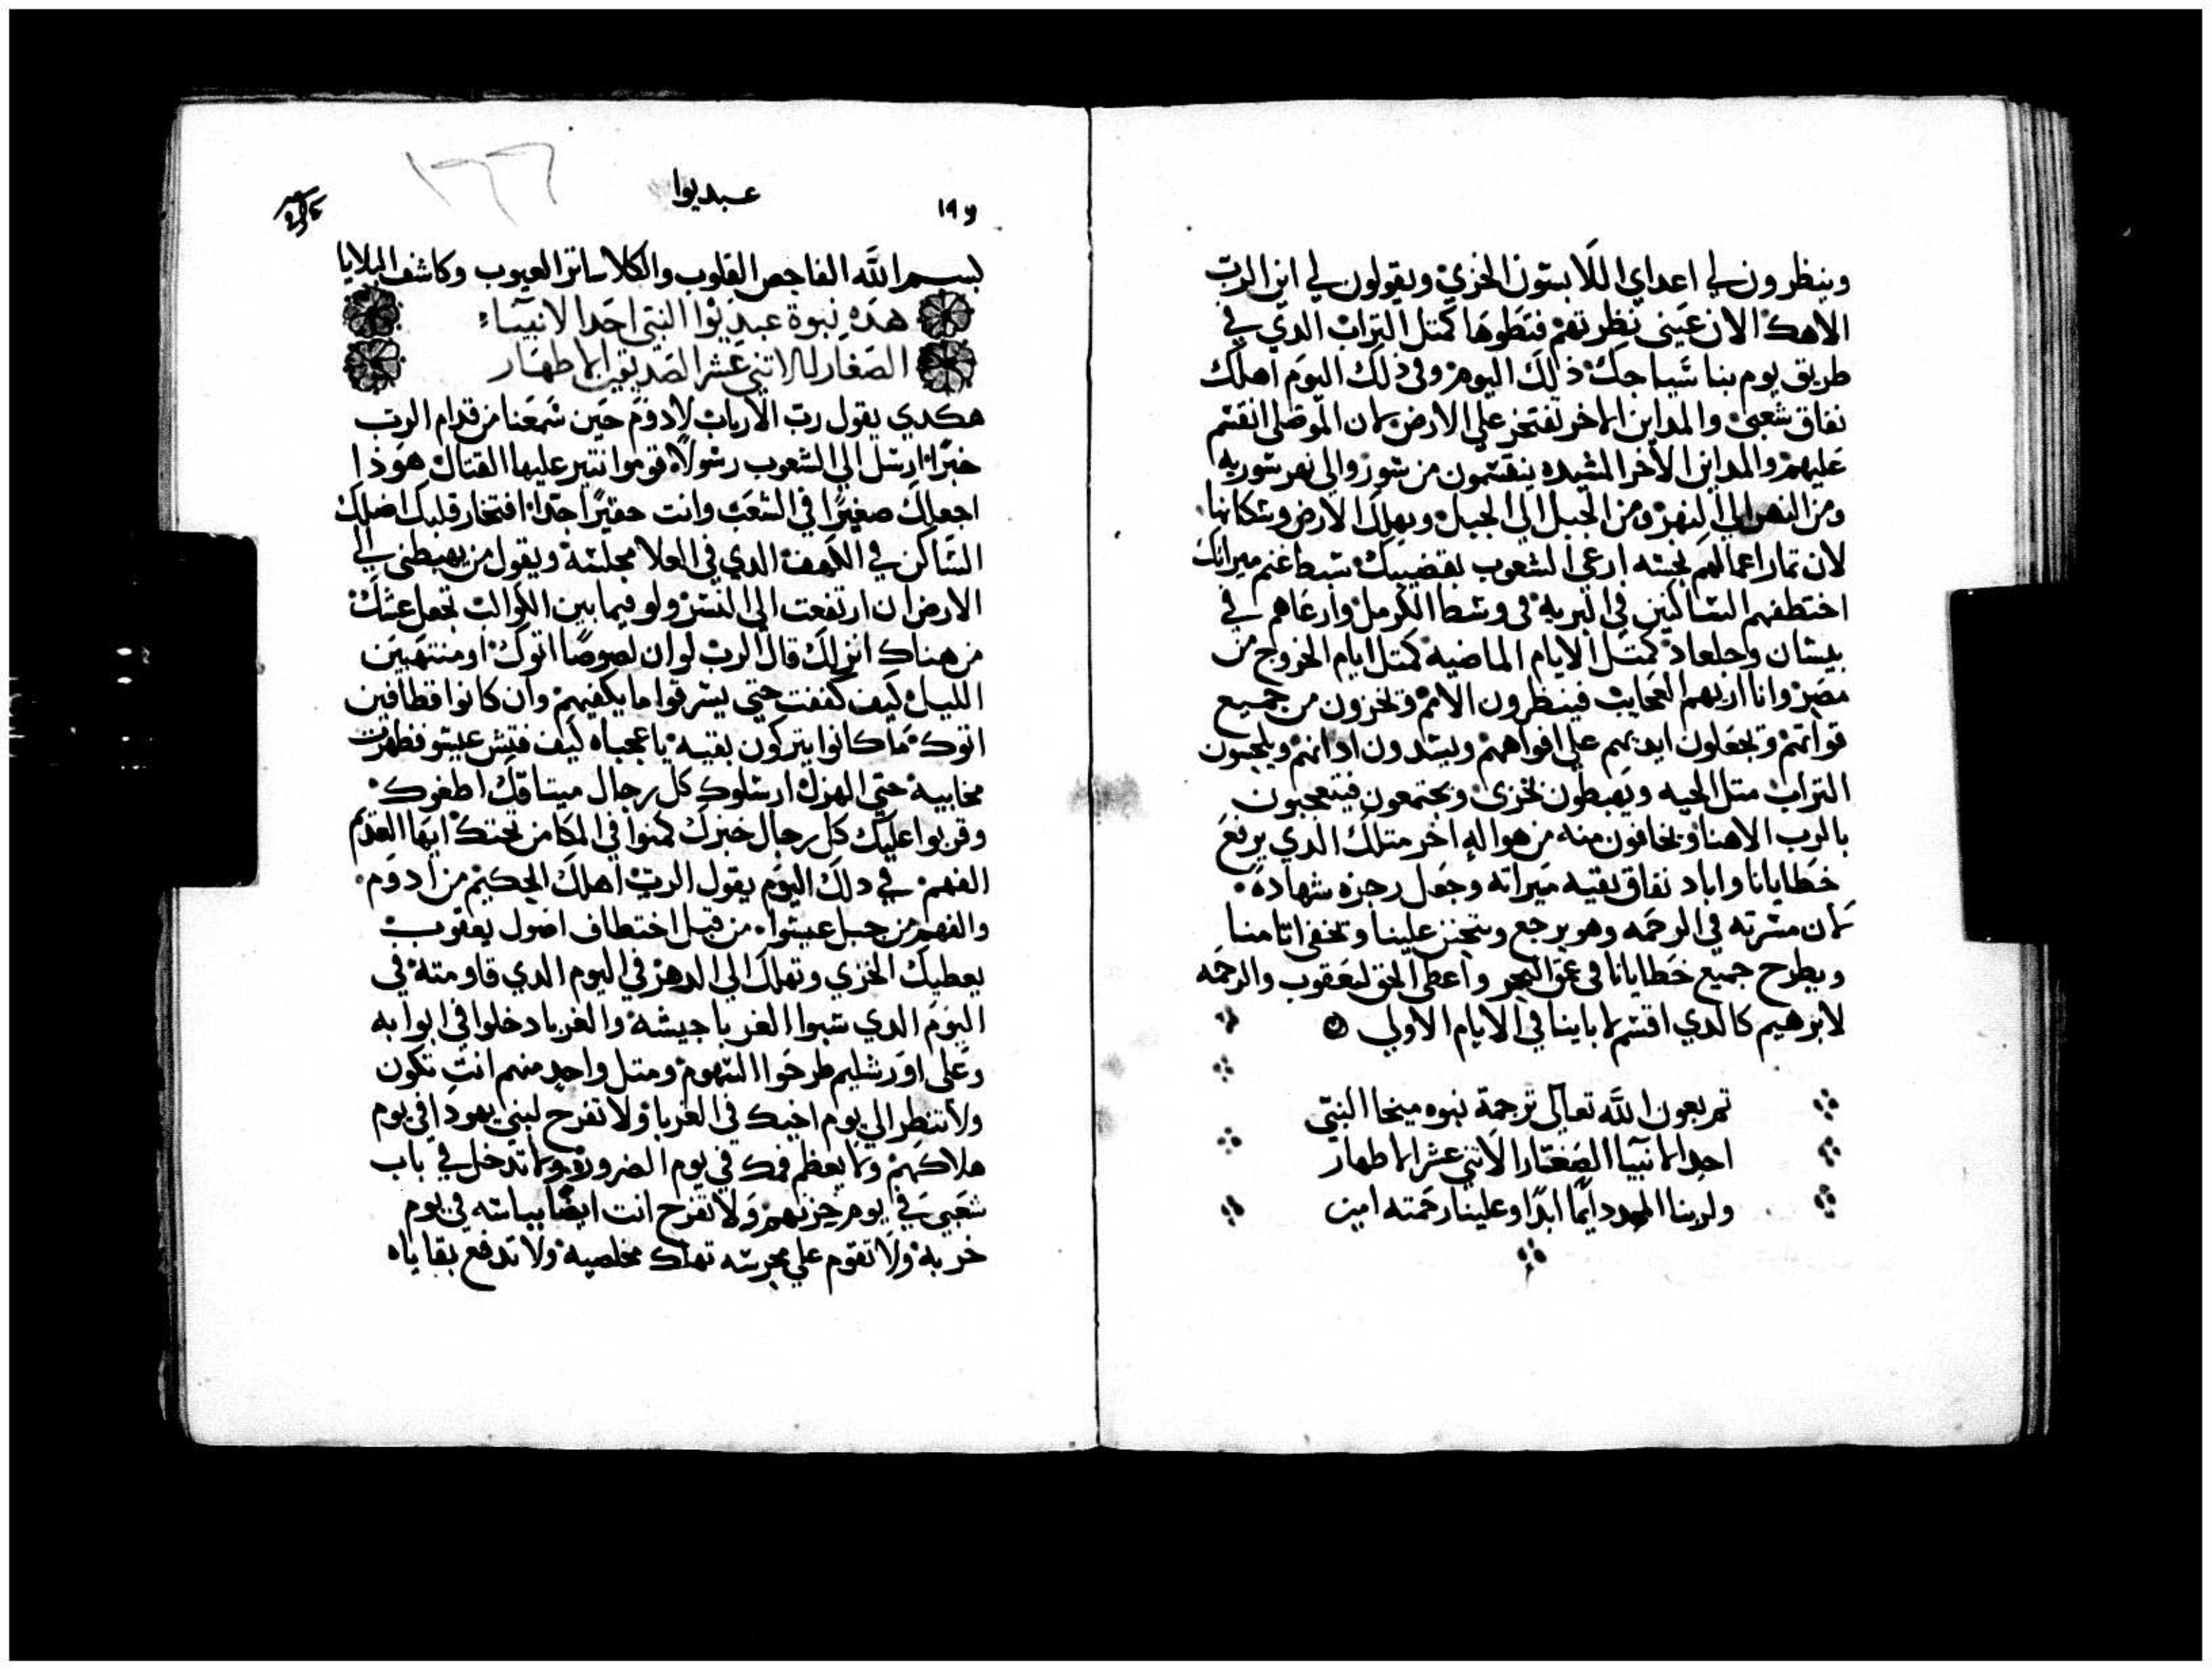 وينظرون لي اعداي اللابسون الخزي ويقولون لي اين الرب
الاهك الان عيني نظرتهم فتطوها كمتل التراب الدي في
طريق يوم بنا سياجك ذلك اليوم وفي ذلك اليوم اهلك
نفاق شعبي والمداين الاخر تفتخر علي الارض لان الموصلي انقسم
عليهم والمداين الاخر المشيده ينقسمون من سور والي نهر سوريه
ومن النهر الي النهر ومن الجبل الي الجبل ويهلك الارض وسكانها
لان تمار اعمالهم نجسه ارعي الشعوب بقضيبك سبط غنم ميراتك
اختطفهم الساكنين في البريه في وسط الكرمل وارعاهم في
بيسان وجلعاد كمتل الايام الماضيه كمتل ايام الخروج من
مصر وانا اريهم العجايب فينظرون الامم وتخزون من جميع
قواتهم وتجعلون ايديهم علي افواههم ويسدون ادانهم ويلحسون
التراب متل الحيه ويهبطون نخزي ويجتمعون فيتعجبون
بالرب الاهنا ويخافون منه من هو اله اخر متلك الدي يرفع
خطايانا واباد نفاق بقيه ميراته وجعل رجزه شهادة
لان مسرته في الرحمه وهو يرجع ويتحنن علينا وتخفي اتامنا
ويطرح جميع خطايانا في عمق البحر واعطي الحق ليعقوب والرحمه
لابرهيم كالدي اقسم لاباينا في الايام الاولي
تم بعون الله تعالي ترجمة نبوه ميخا النبي
احد الانبيا الصغار الاتني عشر الاطهار
ولربنا المجد دايما ابدا وعلينا رحمته امين
عبديوا
بسم الله الفاحص القلوب والكلا ساتر العيوب وكاشف البلايا
هده نبوة عبديوا النبي احد الانبياء
الصغار الاتني عشر الصديقين الاطهار
هكدي يقول رب الارباب لادوم حين سمعنا من قدام الرب
خبرا ارسل الي الشعوب رسولا قوموا نتير عليها القتال هوذا
اجعلك صغيرا في الشعب وانت حقيرا جدا افتخار قلبك اضلك
الساكن في الكهف الدي في العلا مجلسه ويقول من يهبطني الي
الارض ان ارتفعت الي النسر ولو فيما بين الكواكب تجعل عشك
من هناك انزلك قال الرب لو ان لصوصا اتوك او منتهبين
الليل كيف كففت حتي يسرقوا ما يكفيهم وان كانوا قطافين
اتوك ما كانوا يتركون بقيه يا عجباه كيف فتش عيسو فظهرت
مخابيه حتي الهزك ارسلوك كل رجال ميتاقك اطغوك
وقربوا عليك كل رجال خبزك كمنوا في المكامن تحتك ايها القديم
الفهم في دلك اليوم يقول الرب اهلك الحكيم من ادوم
والفهم من جبل عيسوا من قبل اختطاف اصول يعقوب
يعطيك الخزي وتهلك الي الدهر في اليوم الدي قاومته في
اليوم الدي سبوا الغربا جيشه والغربا دخلوا في ابوابه
وعلي اورشليم طرحوا السهوم ومتل واحد منهم انت تكون
ولا تنظر الي يوم اخيك في الغربا ولا تفرح لبني يهودا في يوم
هلاكهم ولا يعظم فمك في يوم الضروره ولا تدخل في باب
شعبي في يوم حزنهم ولا تفرح انت ايضا بياسه في يوم
خربه ولا تقوم علي مجرسه تهلك مخلصيه ولا تدفع بقاياه